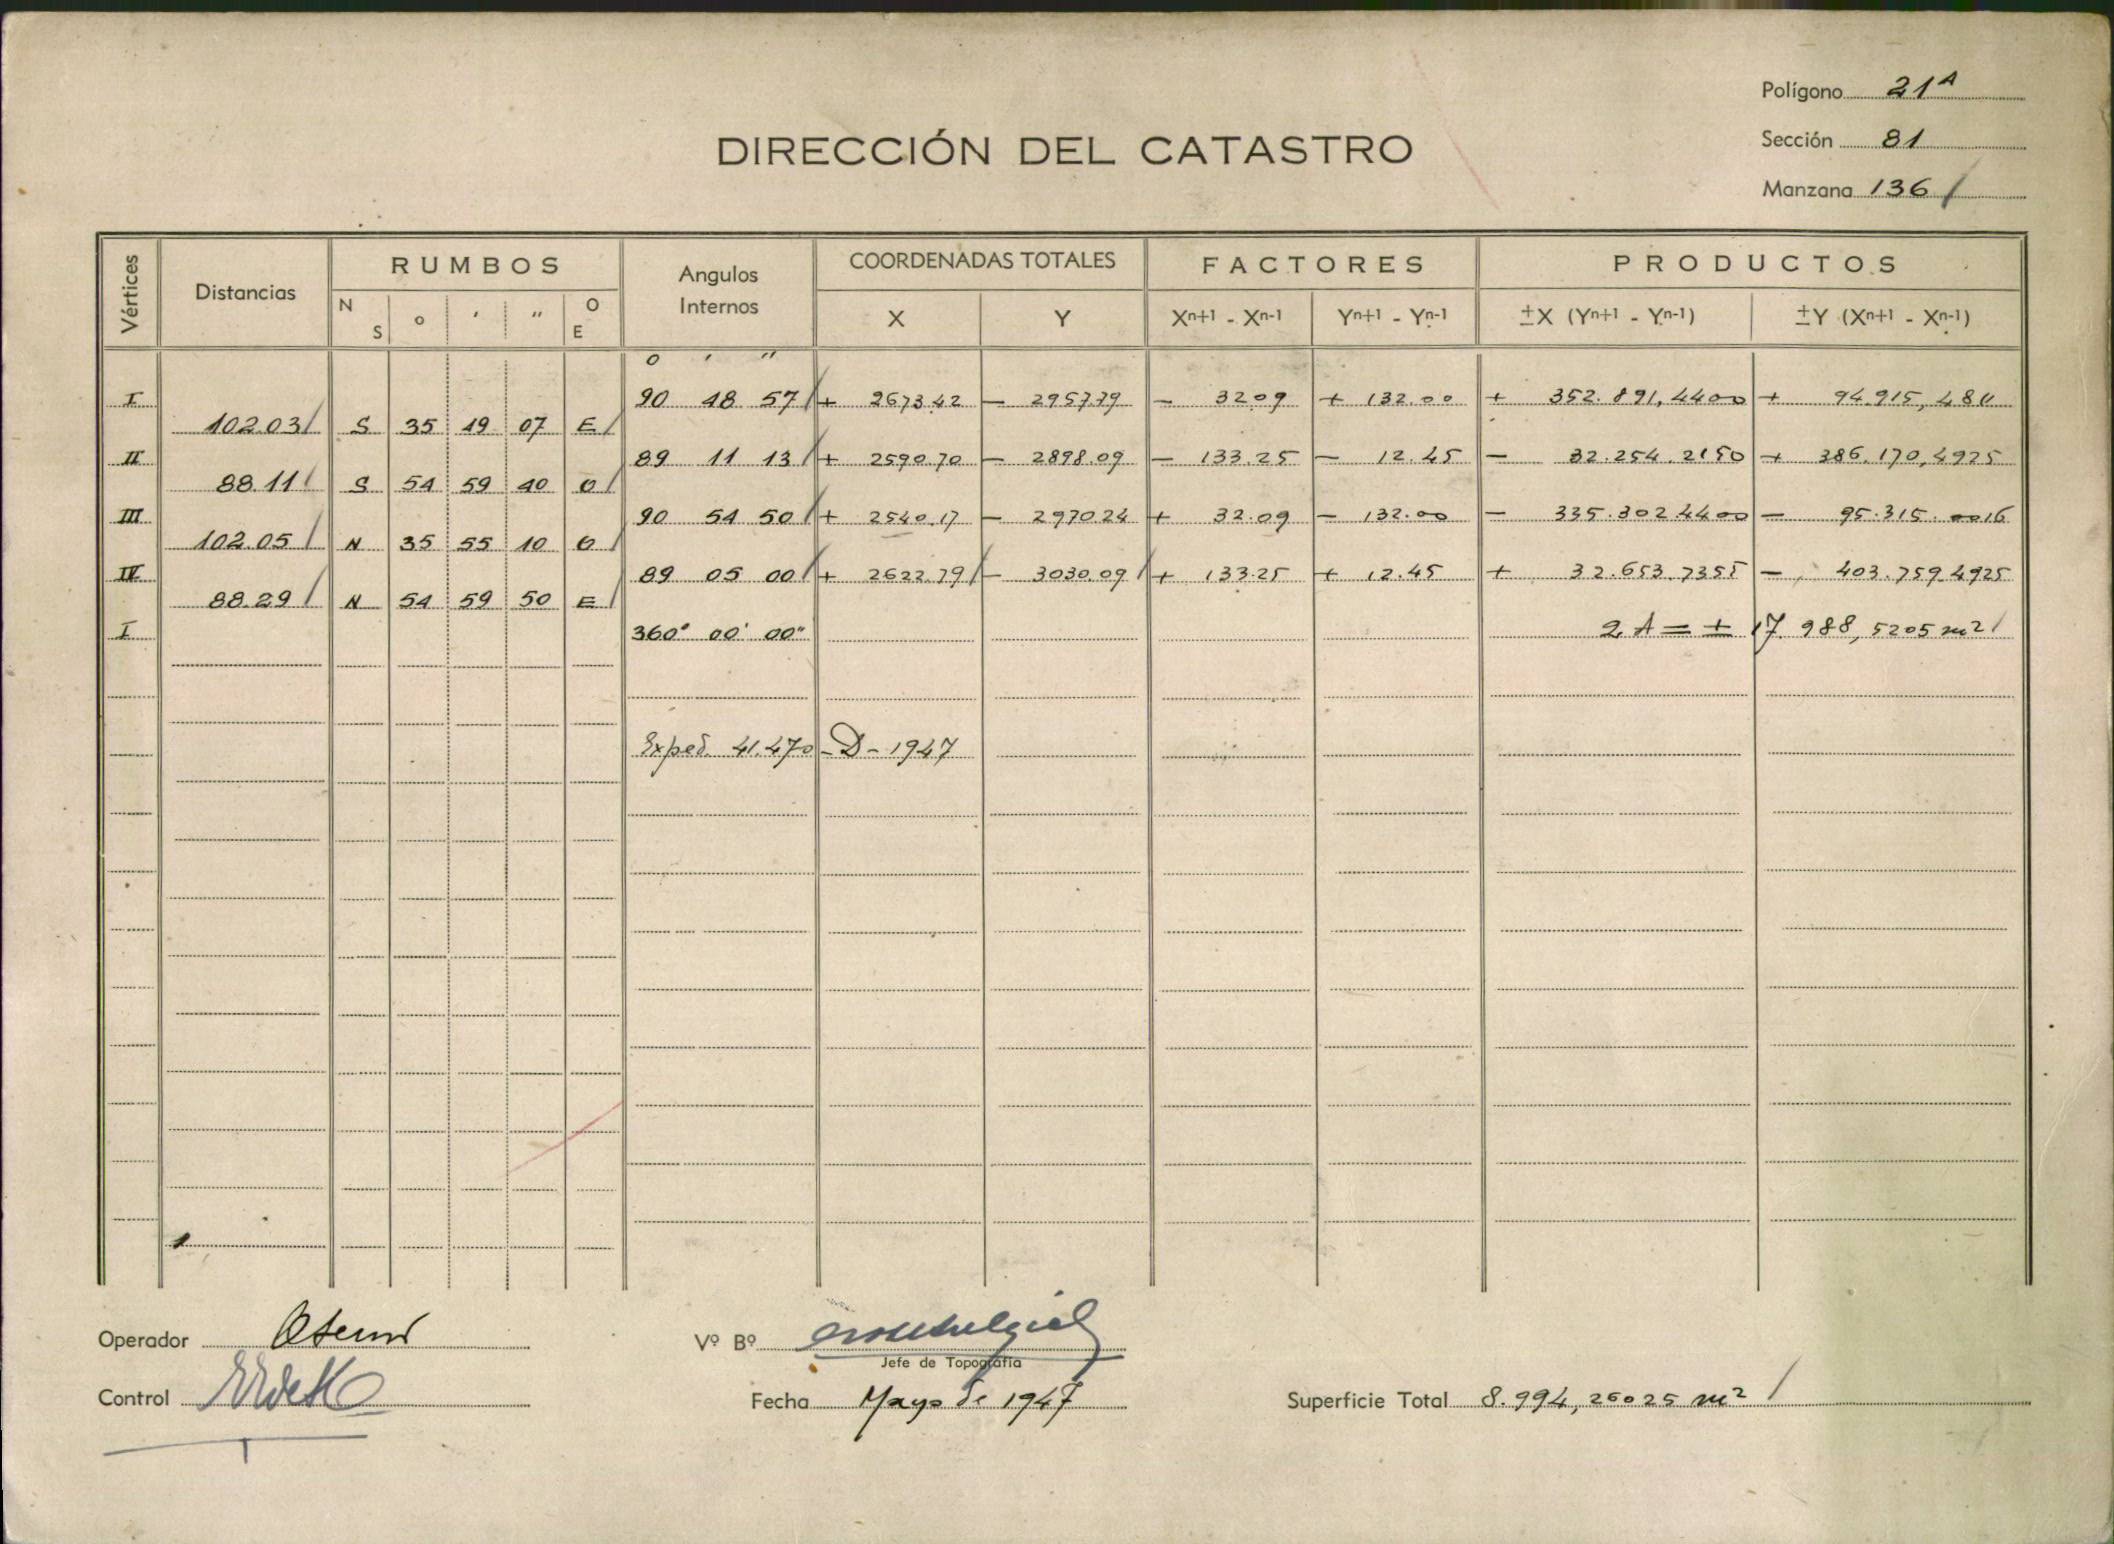 Polígono 21A
Sección 81
Manzana 136 /
DIRECCIÓN DEL CATASTRO
Vértices Distancias RUMBOS Angulos Internos COORDENADAS TOTALES FACTORES PRODUCTOS
N S o ' " O E X Y Xn+1 - Xn-1 Yn+1 - Yn-1 ±X (Yn+1 - Yn-1) ±Y (Xn+1 - Xn-1)
o ' "
I 90 48 57 / + 2673.42 – 2957.79 – 32.09 + 132.00 + 352.891,4400 + 94.915,4811
102.03 / S 35 49 07 E /
II 89 11 13 / + 2590.70 – 2898.09 – 133.25 – 12.45 – 32.254.2150 + 386.170,4925
88.11 / S 54 59 40 O /
III 90 54 50 / + 2540.17 – 2970.24 + 32.09 – 132.00 – 335.302.4400 – 95.315.0016
102.05 / N 35 55 10 O /
IV 89 05 00 / + 2622.79 / – 3030.09 / + 133.25 + 12.45 + 32.653.7355 – 403.759.4925
88.29 / N 54 59 50 E /
I 360° 00' 00" 2A = ± 17.988,5205 m2 /
Exped. 41.470 - D - 1947
Operador
Vº Bº
Jefe de Topografía
Control
Fecha Mayo de 1947
Superficie Total 8.994,26025 m2 /